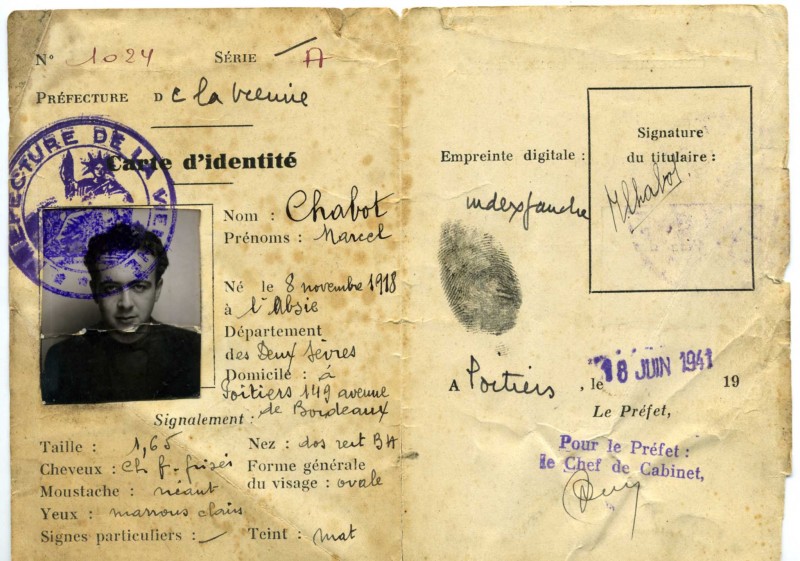 N° 1024 SÉRIE A
PRÉFECTURE De la Vienne
PRÉFECTURE DE LA VIENNE
Carte d'identité
Nom : Chabot
Prénoms : Marcel
Né le 8 novembre 1918
à l'Absie
Département
des Deux Sèvres
Domicile : à
Poitiers 149 avenue
de Bordeaux
Signalement :
Taille : 1,65
Nez : dos rect
Cheveux : Ch f. frisés
Forme générale
du visage : ovale
Moustache : néant
Yeux : marrons clairs
Signes particuliers : —
Teint : mat
Empreinte digitale :
index gauche
Signature
du titulaire :
MChabot
A Poitiers, le 18 JUIN 1941 19
Le Préfet,
Pour le Préfet :
le Chef de Cabinet,